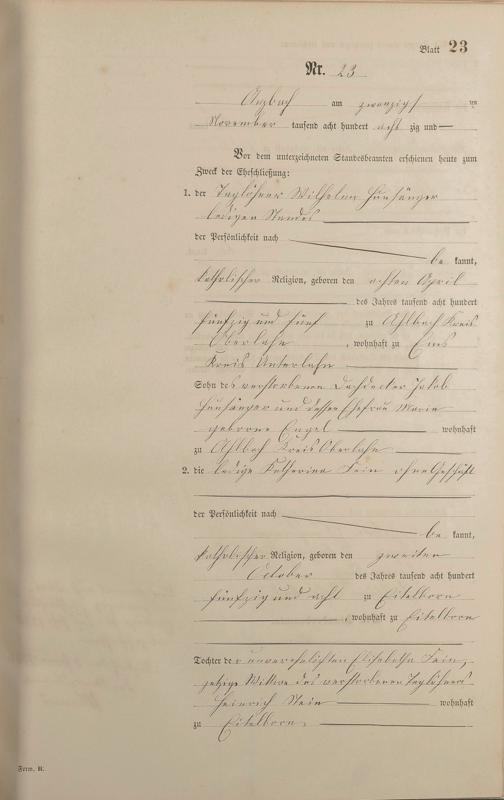 Blatt 23
Nr. 23
Arzbach am zwanzigsten
November tausend acht hundert acht zig und
Vor dem unterzeichneten Standesbeamten erschienen heute zum
Zweck der Eheschließung:
1. der Taglöhner Wilhelm Hunsänger
ledigen Standes
der Persönlichkeit nach
be kannt,
katholischer Religion, geboren den achten April
des Jahres tausend acht hundert
fünfzig und fünf zu Ahlbach Kreis
Oberlahn, wohnhaft zu Ems
Kreis Unterlahn
Sohn des verstorbenen Dachdecker Jakob
Hunsänger und dessen Ehefrau Maria
geborene Engel wohnhaft
zu Ahlbach Kreis Oberlahn
2. die ledige Katharina Fein ohne Geschäft
der Persönlichkeit nach
be kannt,
katholischer Religion, geboren den zweiten
October des Jahres tausend acht hundert
fünfzig und acht zu Eitelborn
, wohnhaft zu Eitelborn
Tochter der unverehelichten Elisabetha Fein,
jetzige Wittwe des verstorbenen Taglöhners
Heinrich Stein wohnhaft
zu Eitelborn
Form. B.